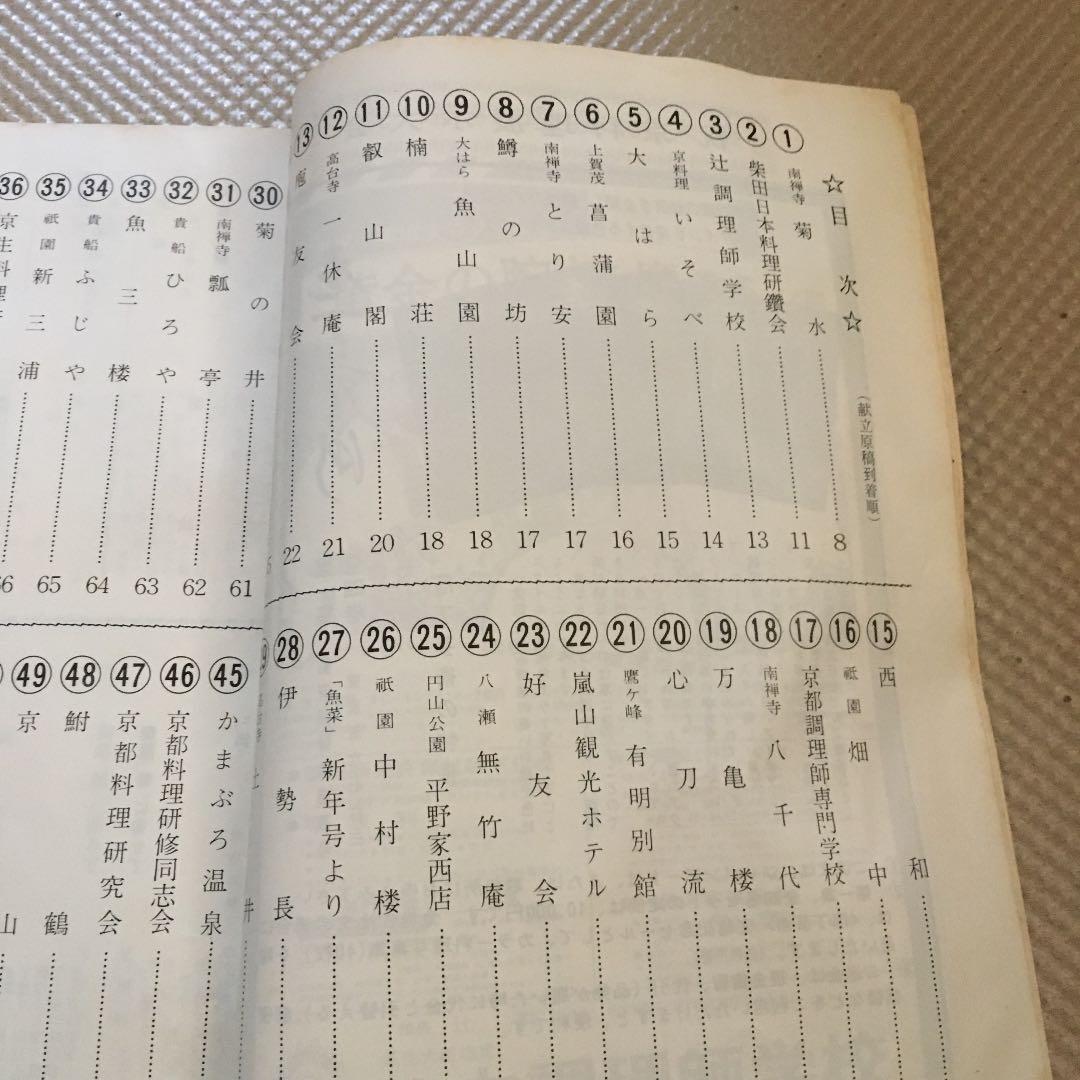 ☆目次☆
(献立原稿到着順)
① 南禅寺 菊水 8
② 柴田日本料理研鑽会 11
③ 辻調理師学校 13
④ 京料理 いそべ 14
⑤ 大はら 15
⑥ 上賀茂 菖蒲園 16
⑦ 南禅寺 とり安 17
⑧ 鱒の坊 17
⑨ 大はら 魚山園 18
⑩ 楠荘 18
⑪ 叡山閣 20
⑫ 高台寺 一休庵 21
⑬ 庖友会 22
⑮ 西和
⑯ 祇園 畑中
⑰ 京都調理師専門学校
⑱ 南禅寺 八千代
⑲ 万亀楼
⑳ 心刀流
㉑ 鷹ケ峰 有明別館
㉒ 嵐山観光ホテル
㉓ 好友会
㉔ 八瀬 無竹庵
㉕ 円山公園 平野家西店
㉖ 祇園 中村楼
㉗ 「魚菜」新年号より
㉘ 伊勢長
㉚ 菊の井 61
㉛ 南禅寺 瓢亭 62
㉜ 貴船 ひろや 63
㉝ 魚三楼 64
㉞ 貴船 ふじや 65
㉟ 祇園 新三浦 66
㊱ 京生料理
㊺ かまぶろ温泉
㊻ 京都料理研修同志会
㊼ 京都料理研究会
㊽ 鮒鶴
㊾ 京山